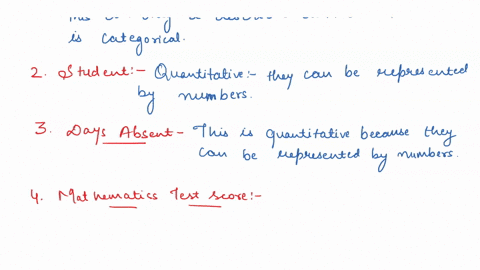 is categorical.
2. Student:- Quantitative:- they can be represented
by numbers.
3. Days Absent- This is quantitative because they
can be represented by numbers.
4. Mathematics Test score:-